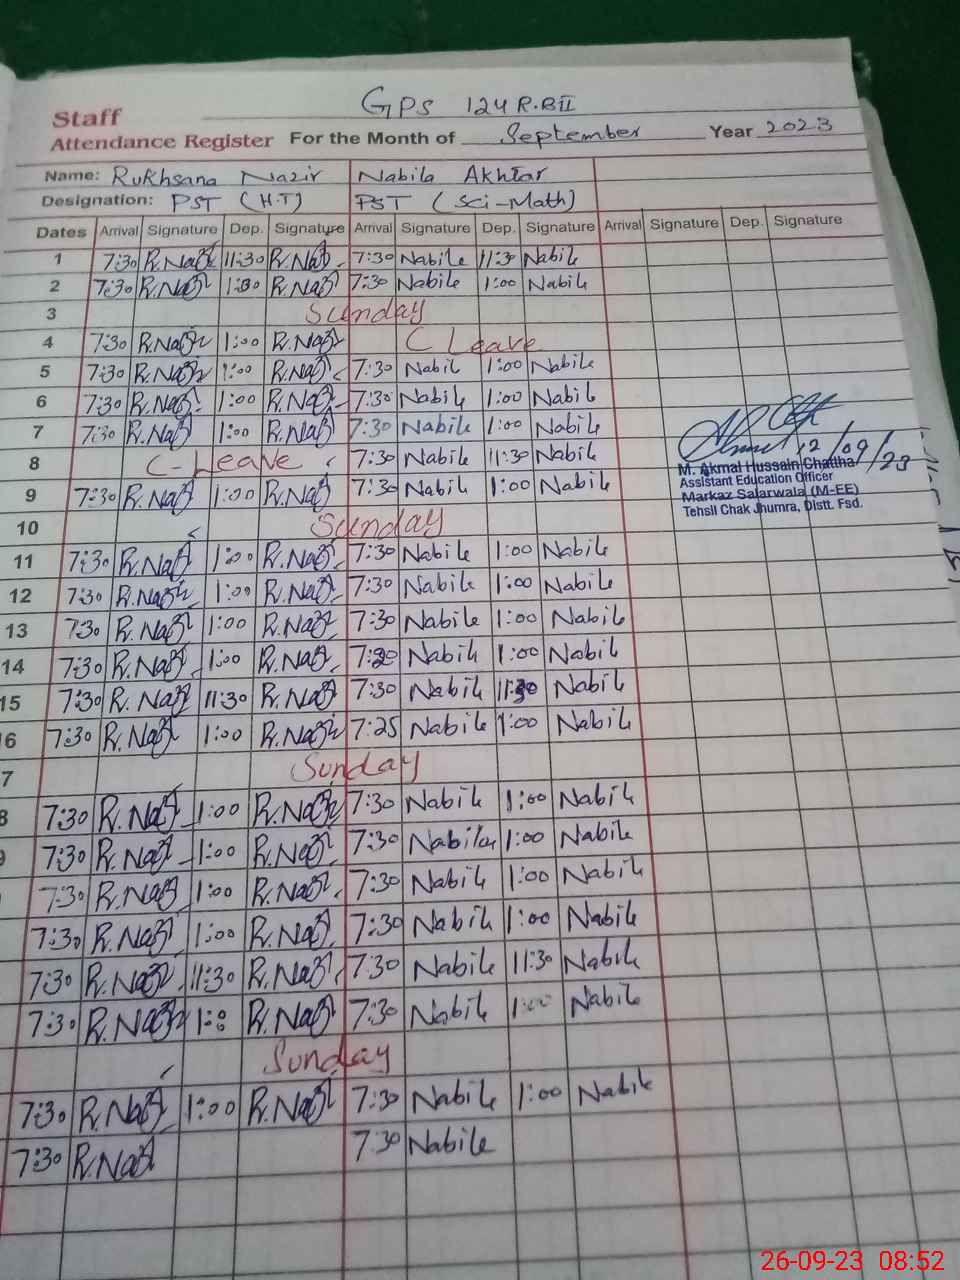 GPS 124 R.BII
Staff
Attendance Register For the Month of September Year 2023
Name: Rukhsana Nazir Nabila Akhtar
Designation: PST (H.T) PST (Sci-Math)
Dates Arrival Signature Dep. Signature Arrival Signature Dep. Signature Arrival Signature Dep. Signature
1 7:30 R.Nazir 11:30 R.Nazir 7:30 Nabila 11:30 Nabila
2 7:30 R.Nazir 1:00 R.Nazir 7:30 Nabila 1:00 Nabila
3 Sunday
4 7:30 R.Nazir 1:00 R.Nazir C Leave
5 7:30 R.Nazir 1:00 R.Nazir 7:30 Nabila 1:00 Nabila
6 7:30 R.Nazir 1:00 R.Nazir 7:30 Nabila 1:00 Nabila
7 7:30 R.Nazir 1:00 R.Nazir 7:30 Nabila 1:00 Nabila
8 C-Leave 7:30 Nabila 11:30 Nabila
9 7:30 R.Nazir 1:00 R.Nazir 7:30 Nabila 1:00 Nabila
12/09/23
M. Akmal Hussain Chattha
Assistant Education Officer
Markaz Salarwala (M-EE)
Tehsil Chak Jhumra, Distt. Fsd.
10 Sunday
11 7:30 R.Nazir 1:00 R.Nazir 7:30 Nabila 1:00 Nabila
12 7:30 R.Nazir 1:00 R.Nazir 7:30 Nabila 1:00 Nabila
13 7:30 R.Nazir 1:00 R.Nazir 7:30 Nabila 1:00 Nabila
14 7:30 R.Nazir 1:00 R.Nazir 7:20 Nabila 1:00 Nabila
15 7:30 R.Nazir 11:30 R.Nazir 7:30 Nabila 11:30 Nabila
6 7:30 R.Nazir 1:00 R.Nazir 7:25 Nabila 1:00 Nabila
7 Sunday
8 7:30 R.Nazir 1:00 R.Nazir 7:30 Nabila 1:00 Nabila
9 7:30 R.Nazir 1:00 R.Nazir 7:30 Nabila 1:00 Nabila
7:30 R.Nazir 1:00 R.Nazir 7:30 Nabila 1:00 Nabila
7:30 R.Nazir 1:00 R.Nazir 7:30 Nabila 1:00 Nabila
7:30 R.Nazir 11:30 R.Nazir 7:30 Nabila 11:30 Nabila
7:30 R.Nazir 1:00 R.Nazir 7:30 Nabila 1:00 Nabila
Sunday
7:30 R.Nazir 1:00 R.Nazir 7:30 Nabila 1:00 Nabila
7:30 R.Nazir 7:30 Nabila
26-09-23 08:52